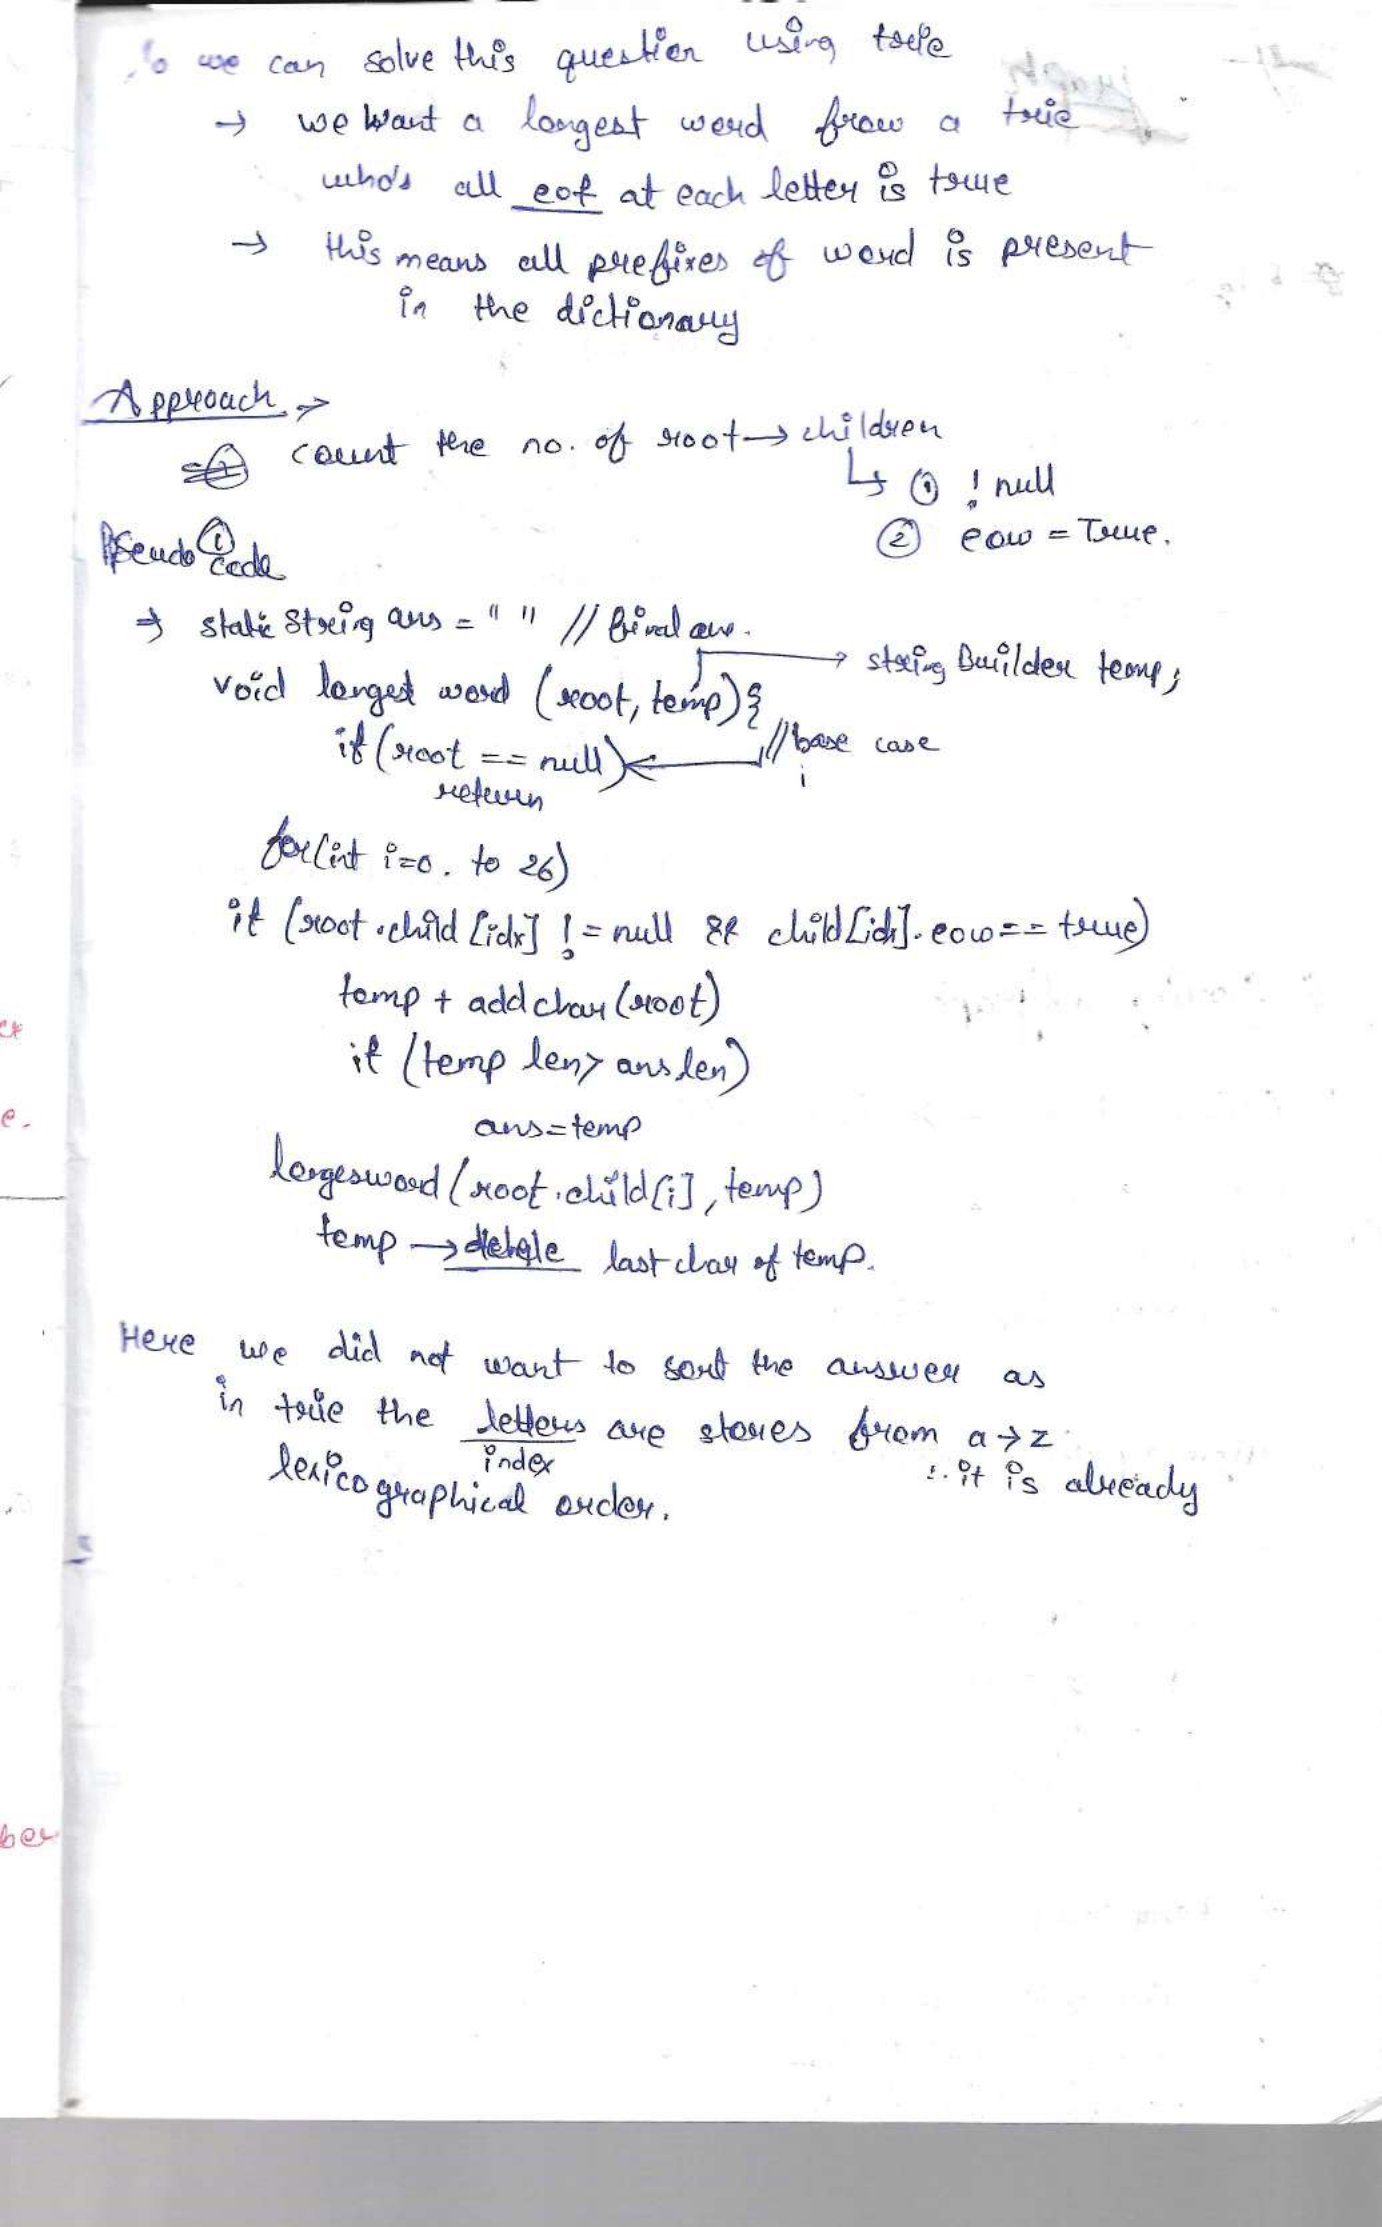 So we can solve this question using trie
→ we want a longest word from a trie
who's all eof at each letter is true
→ this means all prefixes of word is present
in the dictionary
Approach →
count the no. of root → children
① ! null
② eow = True.
Pseudo code ①
⇒ static String ans = " " // final ans.
→ string Builder temp;
void longest word (root, temp) {
if (root == null) // base case
return
for (int i=0. to 26)
if (root.child [idx] != null && child[idx].eow == true)
temp + add char (root)
if (temp len > ans len)
ans = temp
longesword (root.child[i], temp)
temp → delete last char of temp.
Here we did not want to sort the answer as
in trie the letters are stores from a → z
index
∴ it is already
lexicographical order.
ber
e.